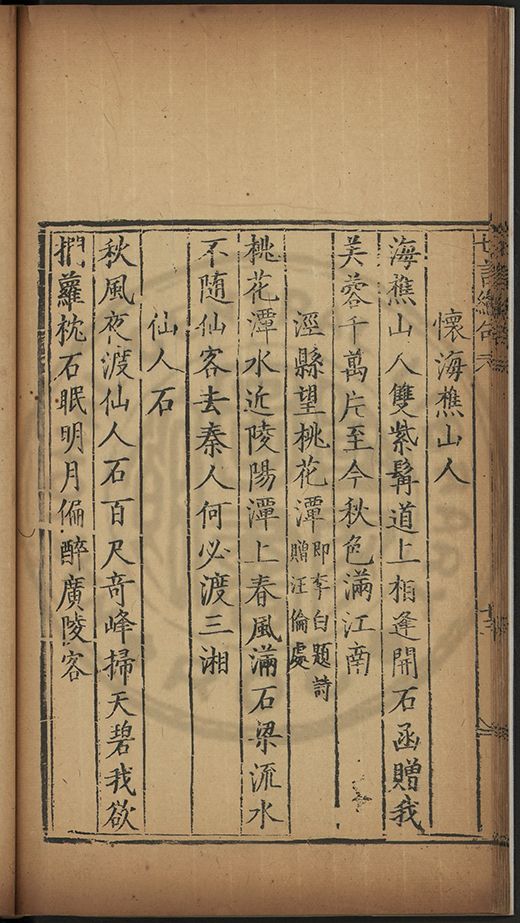 七言絕句
懷海樵山人
海樵山人雙紫髯道上相逢開石函贈我
芙蓉千萬片至今秋色滿江南
涇縣望桃花潭即李白題詩贈汪倫處
桃花潭水近陵陽潭上春風滿石梁流水
不随仙客去秦人何必渡三湘
仙人石
秋風夜渡仙人石百尺奇峰掃天碧我欲
捫蘿枕石眠明月偏醉廣陵客